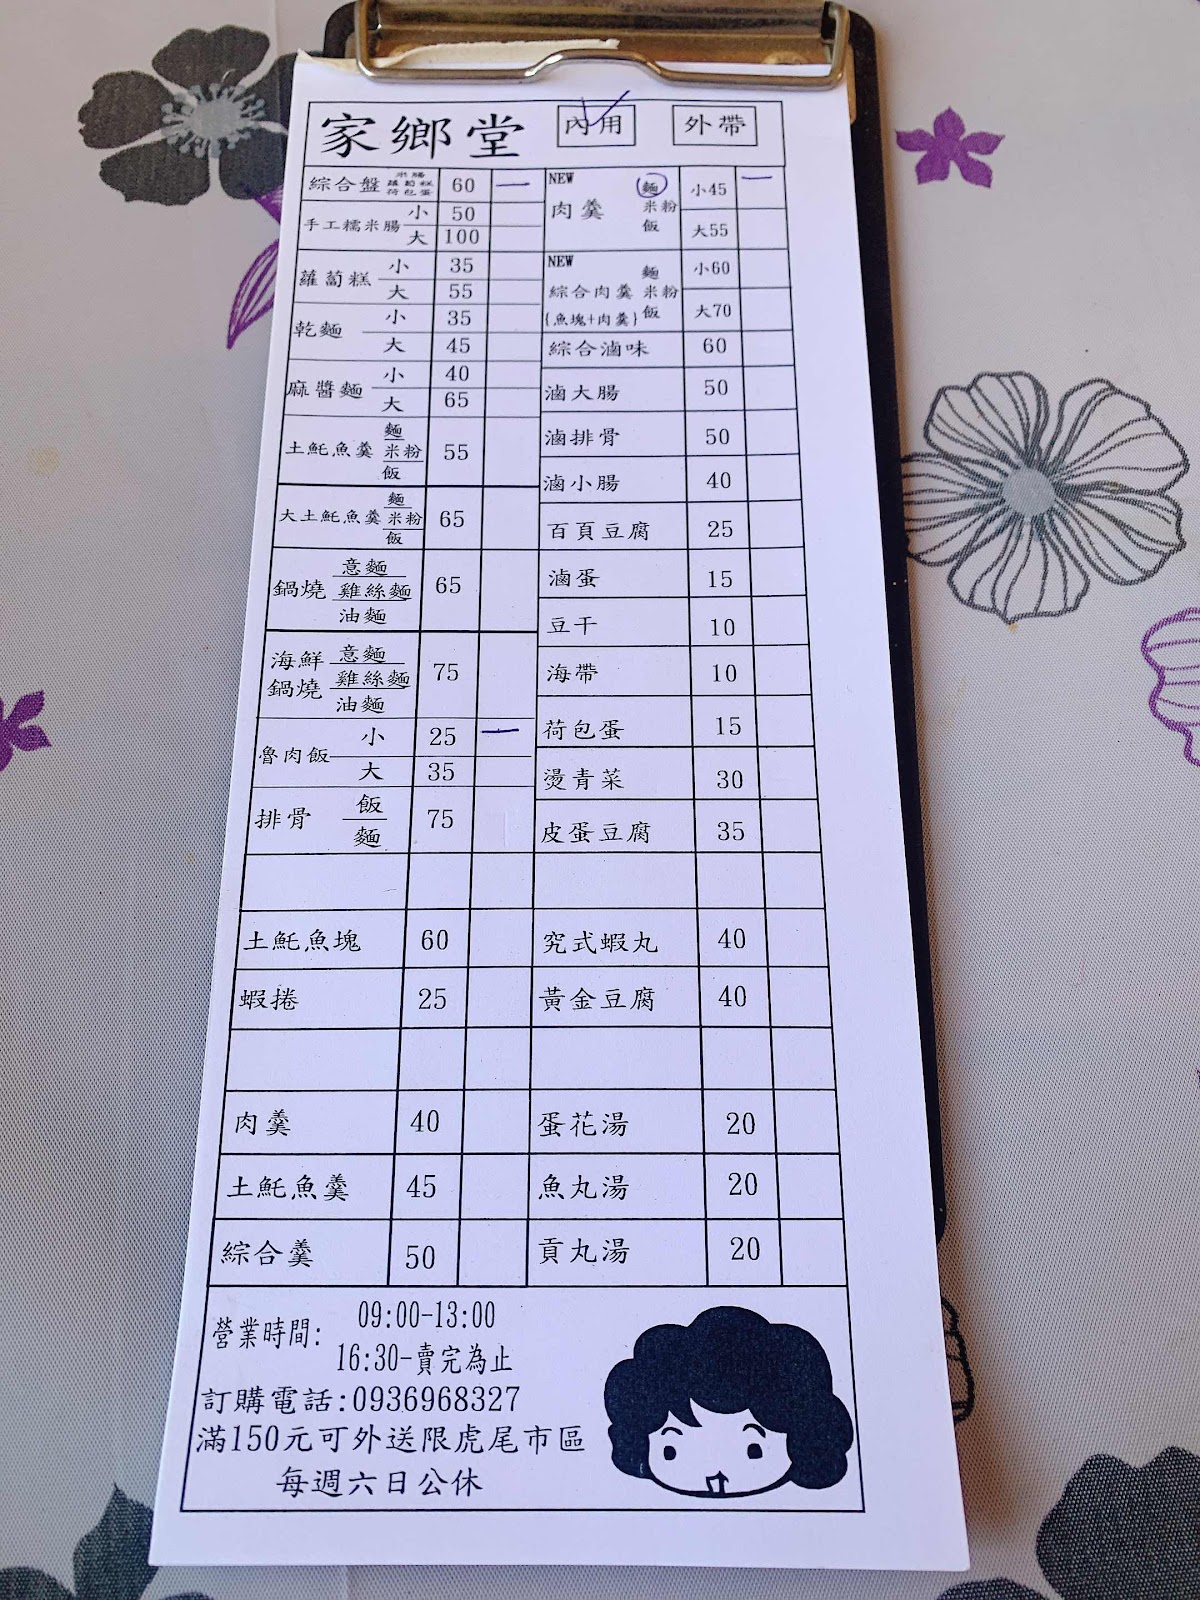 家鄉堂 內用 外帶
綜合盤 米腸 蘿蔔糕 荷包蛋 60 一
手工糯米腸 小 50
大 100
蘿蔔糕 小 35
大 55
乾麵 小 35
大 45
麻醬麵 小 40
大 65
土魠魚羹 麵 米粉 飯 55
大土魠魚羹 麵 米粉 飯 65
鍋燒 意麵 雞絲麵 油麵 65
海鮮鍋燒 意麵 雞絲麵 油麵 75
魯肉飯 小 25 一
大 35
排骨 飯 麵 75
土魠魚塊 60
蝦捲 25
肉羹 40
土魠魚羹 45
綜合羹 50
NEW
肉羹 麵 米粉 飯 小45 一
大55
NEW
綜合肉羹 麵 米粉 飯 小60
{魚塊+肉羹} 大70
綜合滷味 60
滷大腸 50
滷排骨 50
滷小腸 40
百頁豆腐 25
滷蛋 15
豆干 10
海帶 10
荷包蛋 15
燙青菜 30
皮蛋豆腐 35
究式蝦丸 40
黃金豆腐 40
蛋花湯 20
魚丸湯 20
貢丸湯 20
營業時間: 09:00-13:00
16:30-賣完為止
訂購電話:0936968327
滿150元可外送限虎尾市區
每週六日公休